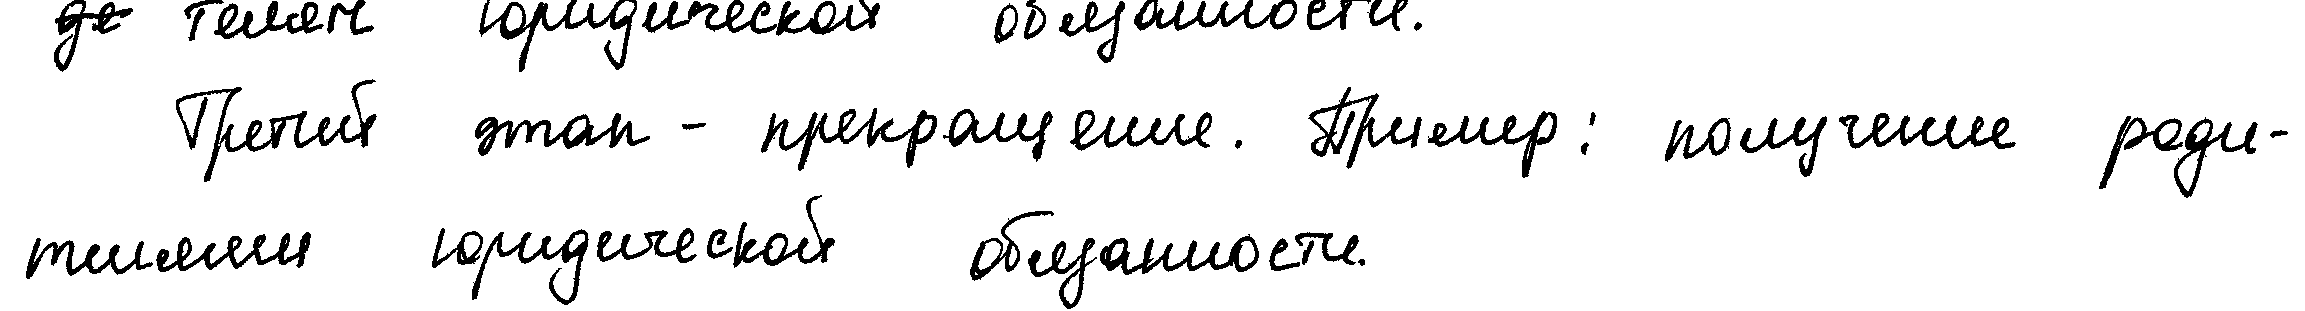 телям юридической обязанности.
Третий этап - прекращение. Пример: получение роди-
телями юридической обязанности.